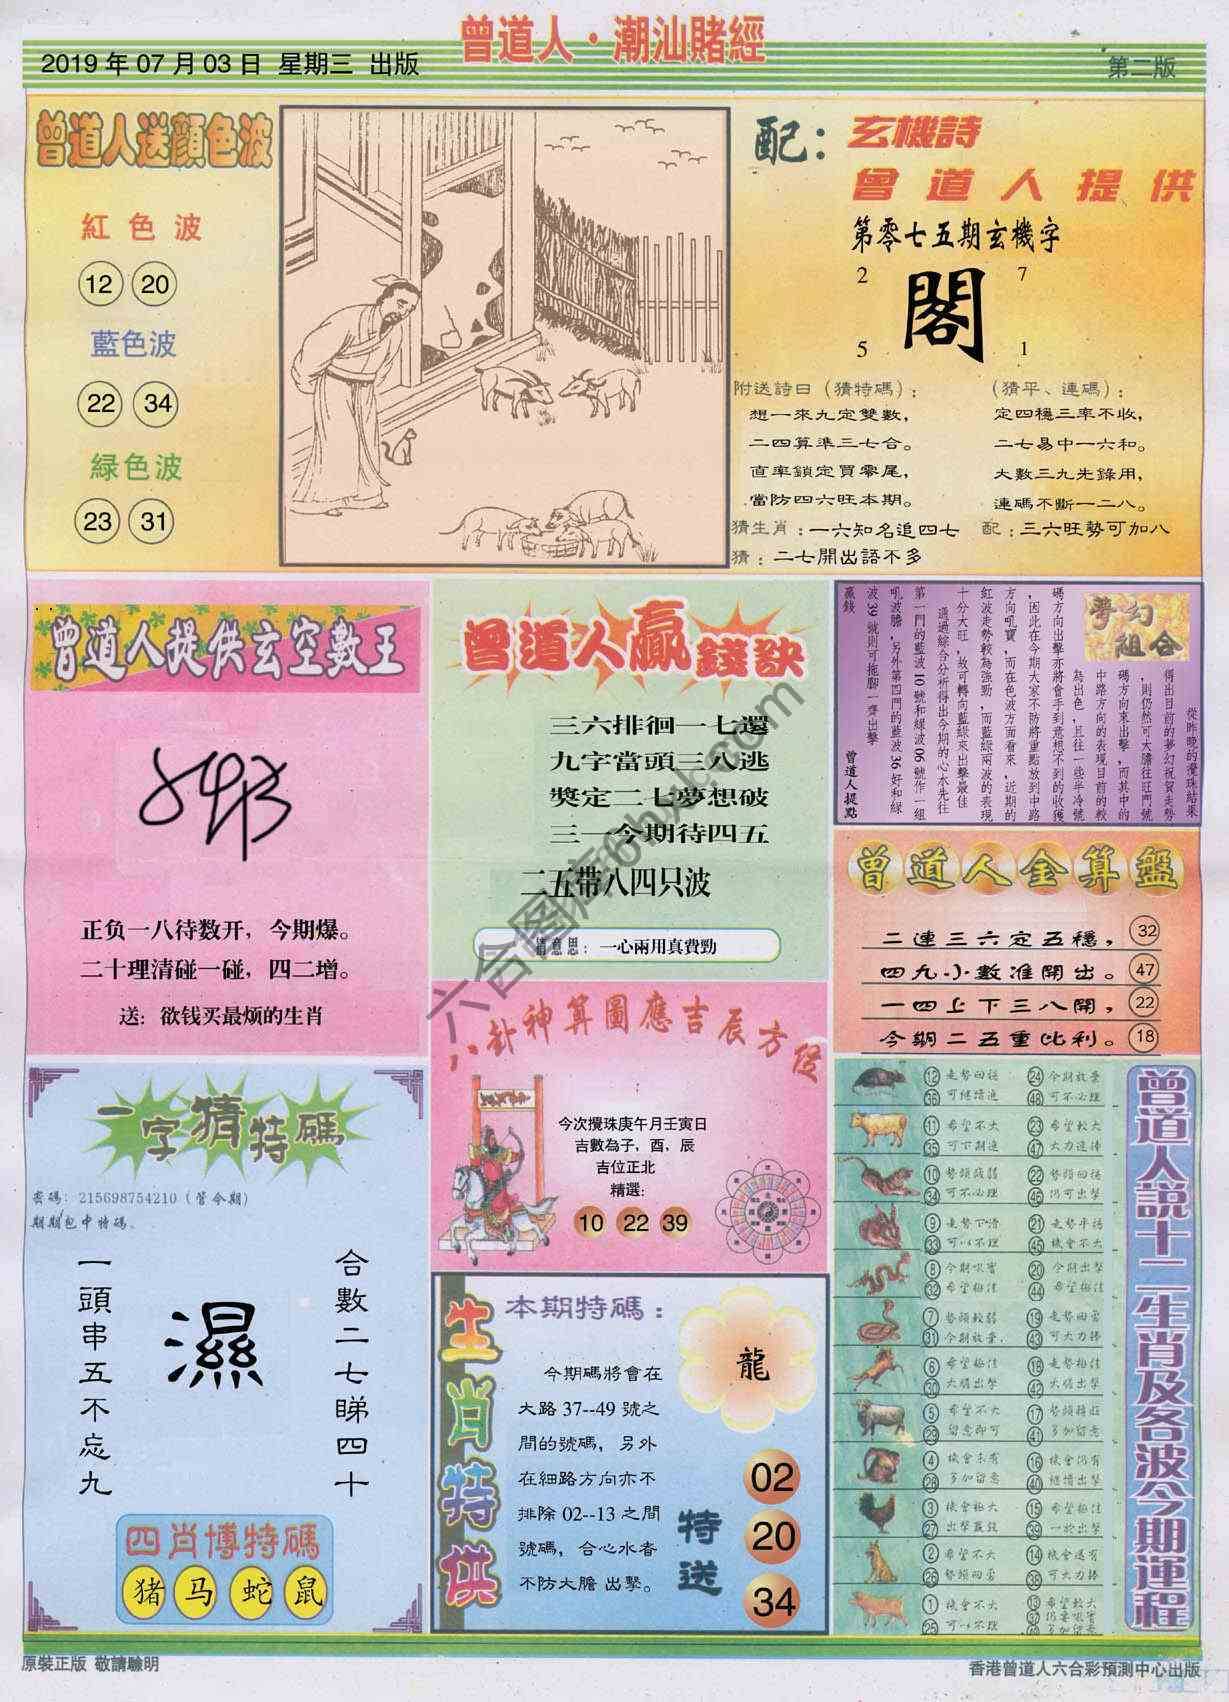 曾道人·潮汕賭經
2019年07月03日 星期三 出版
第二版
曾道人送顔色波
紅色波
12 20
藍色波
22 34
緑色波
23 31
配：
玄機詩
曾道人提供
第零七五期玄機字
2 7
閣
5 1
附送詩曰（猜特碼）：
想一來九定雙數，
二四算準三七合。
直率鎖定買零尾，
當防四六旺本期。
（猜平、連碼）：
定四穩三率不收，
二七易中一六和。
大數三九先錄用，
連碼不斷一二八。
猜生肖：一六知名追四七
配：三六旺勢可加八
猜：二七開出語不多
曾道人提供玄空數王
正负一八待数开，今期爆。
二十理清碰一碰，四二增。
送：欲钱买最烦的生肖
曾道人贏錢訣
三六排徊一七還
九字當頭三八逃
獎定二七夢想破
三一今期待四五
二五带八四只波
猜意思：一心兩用真費勁
夢幻組合
從昨晚的攪珠結果
得出目前的夢幻祝賀走勢
，則仍然可大膽往旺門號
碼方向來出擊，而其中的
中路方向的表現目前的較
為出色，且往一些半冷號
碼方向出擊亦將會手到意想不到的收獲
，因此在今期大家不防將重點放到中路
方向吼寶，而在色波方面看來，近期的
紅波走勢較為強勁，而藍綠兩波的表現
十分大旺，故可轉向藍綠來出擊最佳
通過綜合分析得出今期的心水先往
第一門的藍波10號和緑波06號作一組
吼波膽，另外第四門的藍波36好和綠
波39號則可拖腳一齊出擊
贏錢
曾道人提點
曾道人金算盤
二連三六定五穩， 32
四九小數准開出。 47
一四上下三八開， 22
今期二五重比利。 18
八卦神算圖應吉辰方位
今次攪珠庚午月壬寅日
吉數為子，酉，辰
吉位正北
精選：
10 22 39
一字猜特碼
密碼：215698754210（管今期）
期期包中特碼。
一頭串五不忘九
濕
合數二七睇四十
四肖博特碼
猪 马 蛇 鼠
生肖特供
本期特碼：
龍
今期碼將會在
大路37--49號之
間的號碼，另外
在細路方向亦不
排除02--13之間
號碼，合心水者
不防大膽出擊。
特送
02
20
34
曾道人説十二生肖及各波今期運程
12 走勢回穩 24 今期放棄
36 可继續進 48 可不必理
11 希望不大 23 希望較大
35 可下期進 47 大力進捧
10 勢頭減弱 22 勢頭回穩
34 可不必理 46 仍可出擊
9 走勢下滑 21 走勢平穩
33 可以不理 45 機會不大
8 今期吼寶 20 今期出擊
32 希望極佳 44 希望極佳
7 勢頭較弱 19 走勢回雲
31 今期放棄 43 可大力捧
6 希望極佳 18 走勢極佳
30 大膽出擊 42 大膽出擊
5 希望不大 17 勢頭精旺
29 留意即可 41 多加留意
4 機會未有 16 機會仍有
28 多加留意 40 继續出擊
3 機會極大 15 希望極佳
27 出擊贏錢 39 一於出擊
2 希望不大 14 機會還有
26 勢頭回雲 38 可大力捧
1 機會不大 13 希望較大
25 可以不理 37 仍要吼寶
49 多加留意
原裝正版 敬請驗明
香港曾道人六合彩預測中心出版
六合图库6hx.com